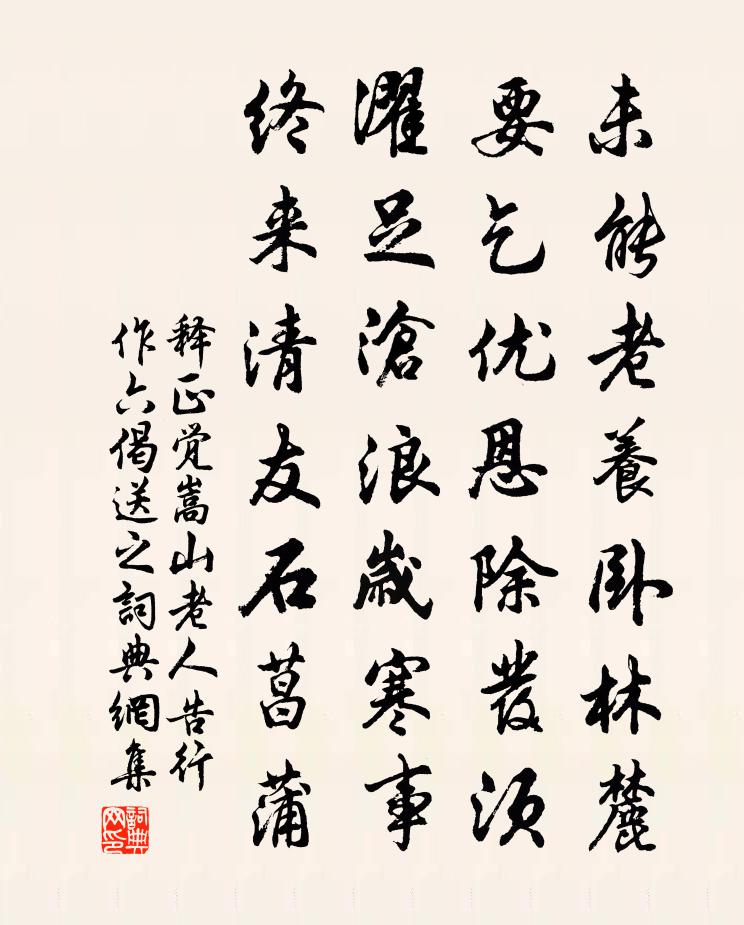 未能老養卧林麓
要乞优恩除發须
濯足滄浪歲寒事
终来清友石菖蒲
释正觉嵩山老人告行
作六偈送之詞典網集
詞典網印